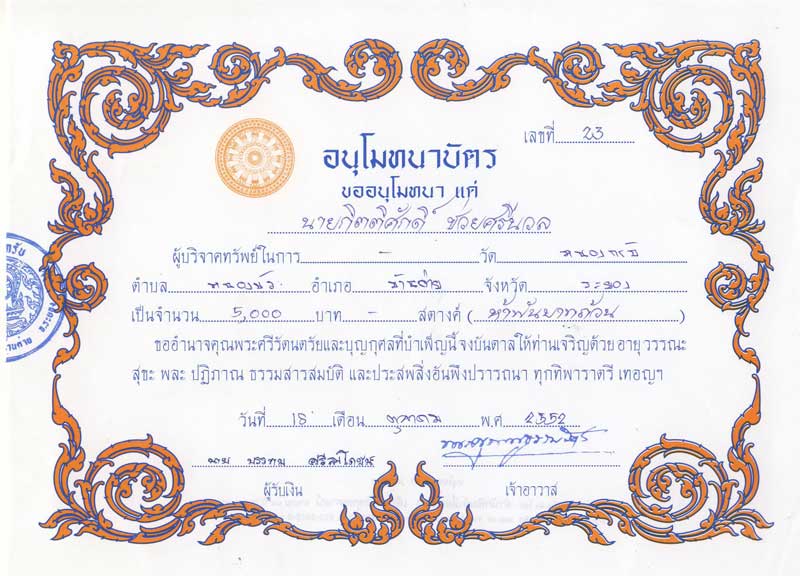 เลขที่ 23
อนุโมทนาบัตร
ขออนุโมทนา แด่
นายกิตติศักดิ์ ช่วยศรีนวล
ผู้บริจาคทรัพย์ในการ - วัด หนองกรับ
ตำบล หนองบัว อำเภอ บ้านค่าย จังหวัด ระยอง
เป็นจำนวน 5,000 บาท - สตางค์ ( ห้าพันบาทถ้วน )
ขออำนาจคุณพระศรีรัตนตรัยและบุญกุศลที่บำเพ็ญนี้ จงบันดาลให้ท่านเจริญด้วย อายุ วรรณะ
สุขะ พละ ปฏิภาณ ธรรมสารสมบัติ และประสพสิ่งอันพึงปรารถนา ทุกทิพาราตรี เทอญฯ
วันที่ 18 เดือน ตุลาคม พ.ศ. 2552
นาย บรรทม
ผู้รับเงิน เจ้าอาวาส